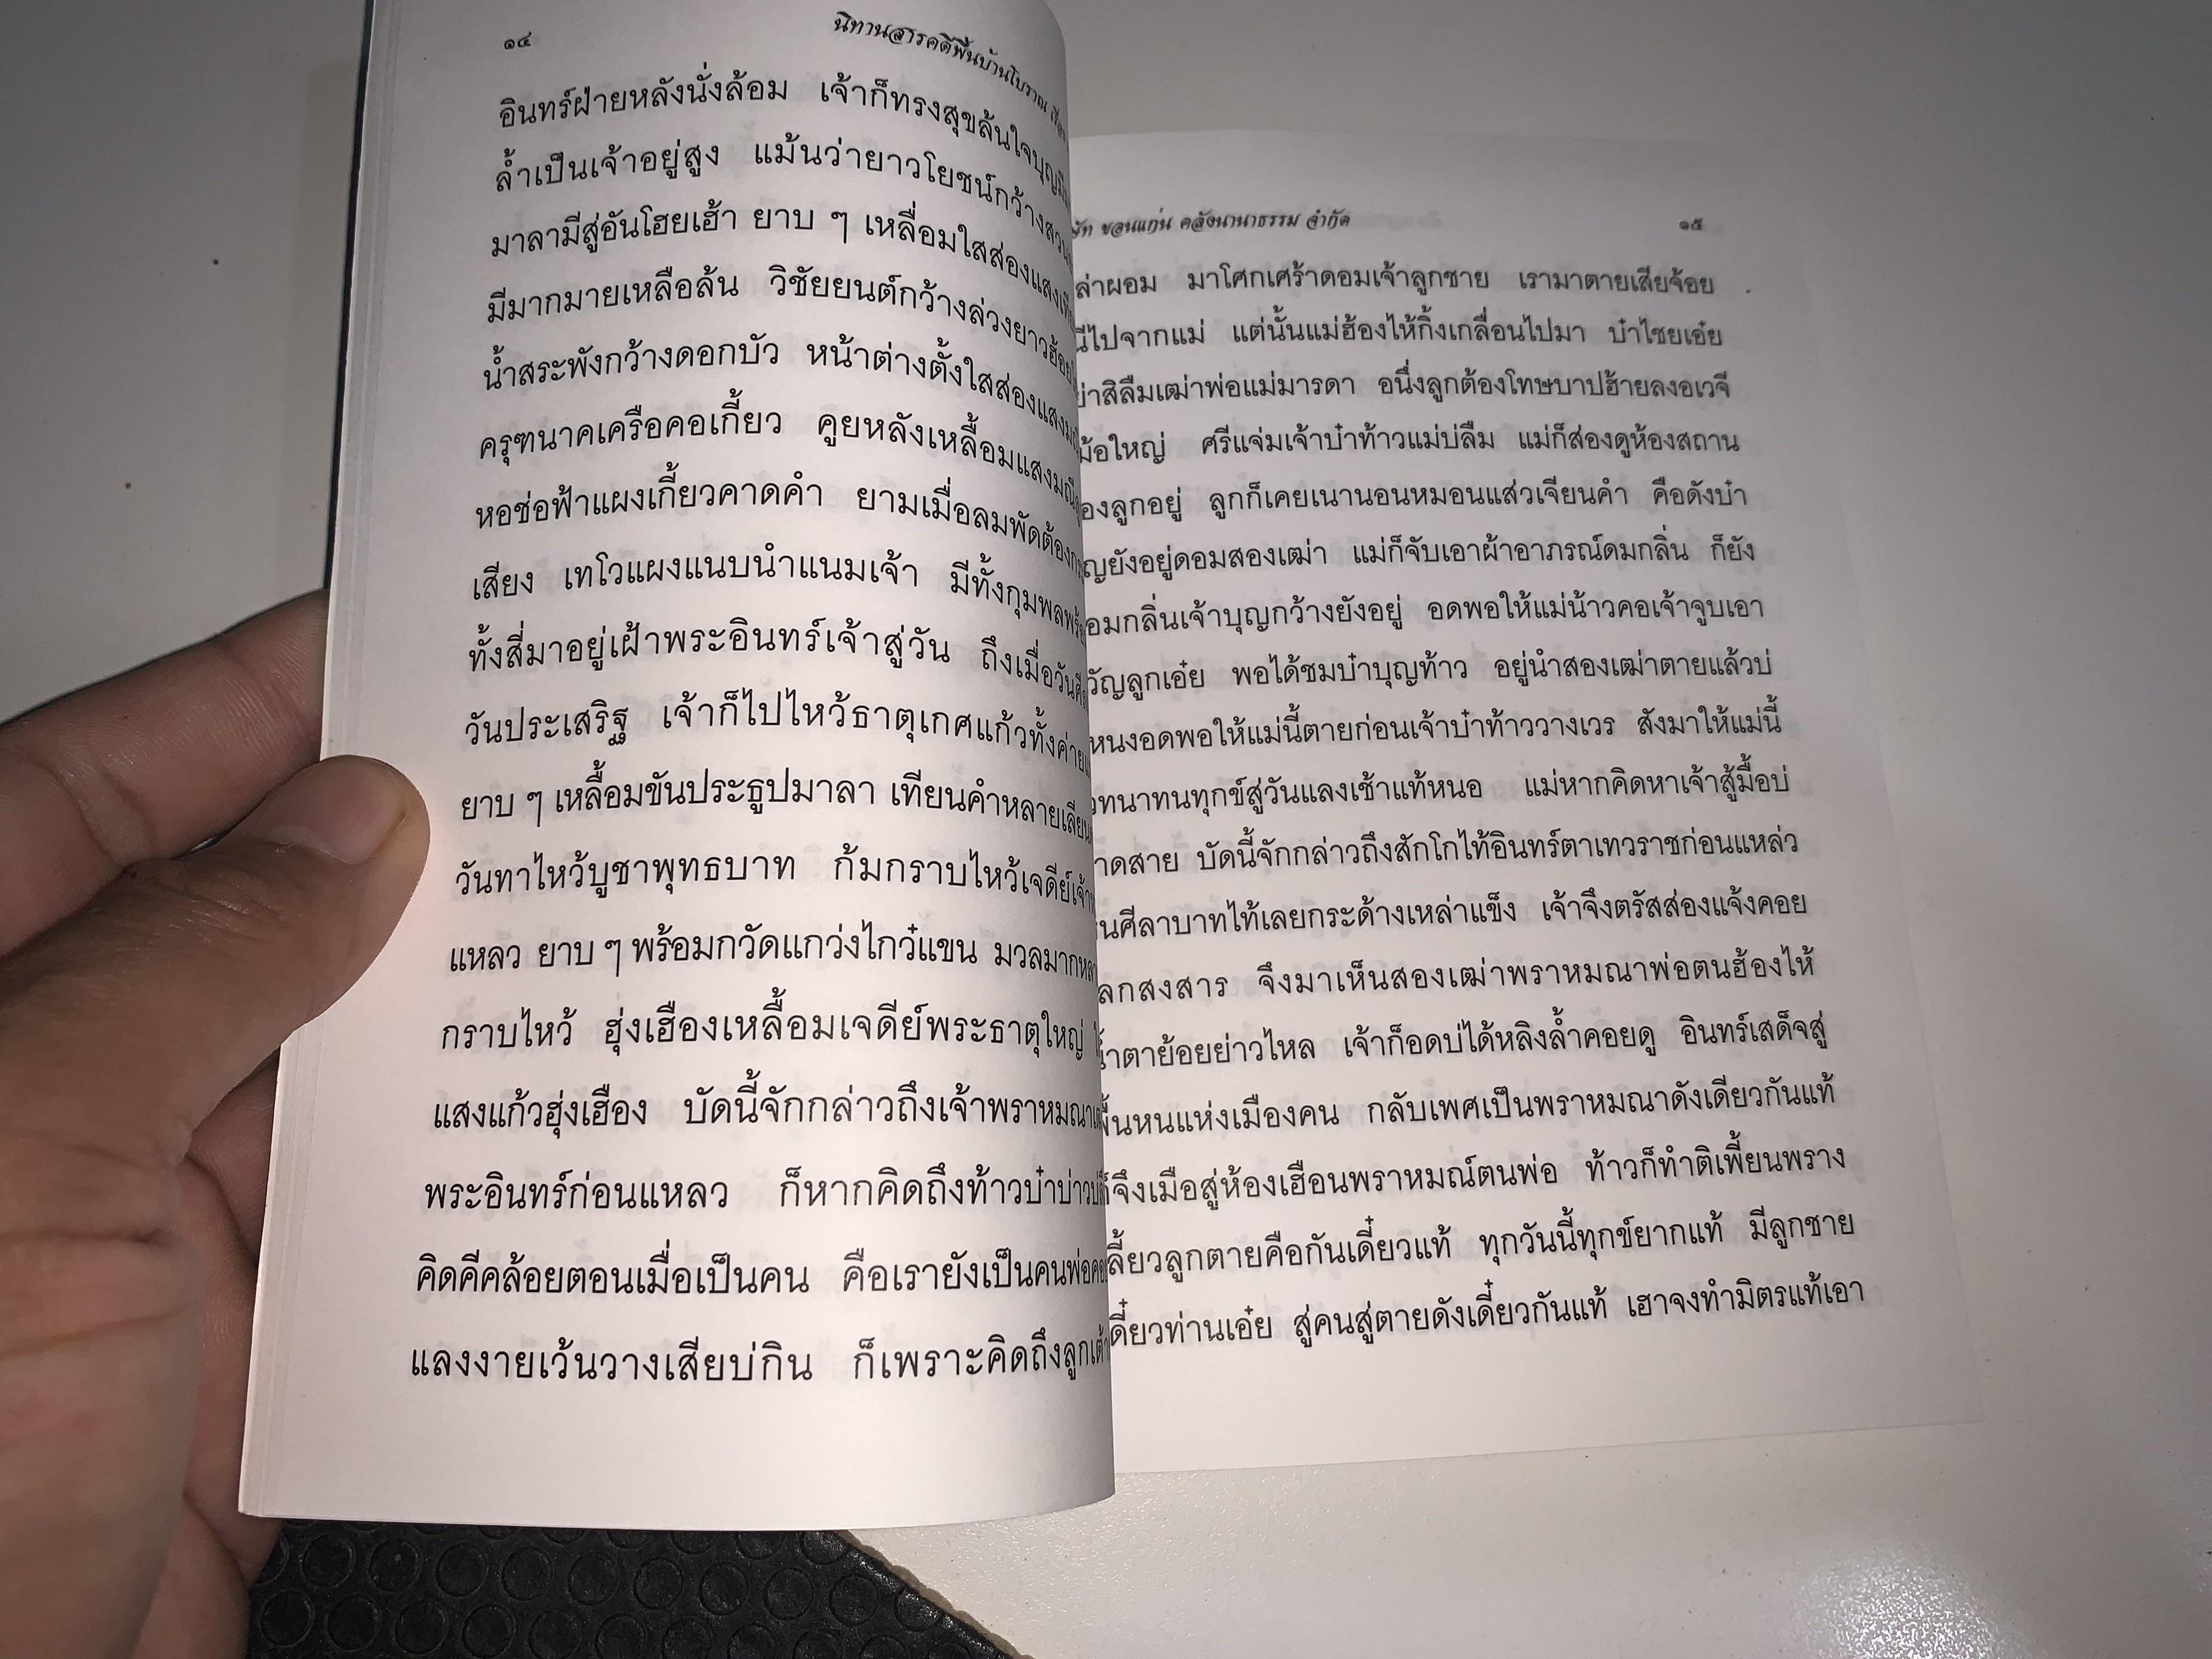 ๑๔
นิทานสารคดีพื้นบ้านโบราณ เรื่อง
อินทร์ฝ่ายหลังนั่งล้อม เจ้าก็ทรงสุขล้นใจบุญ
ล้ำเป็นเจ้าอยู่สูง แม้นว่ายาวโยชน์กว้าง
มาลามีสู่อันโฮยเฮ้า ยาบ ๆ เหลื่อมใสส่องแสง
มีมากมายเหลือล้น วิชัยยนต์กว้างล่วงยาว
น้ำสระพังกว้างดอกบัว หน้าต่างตั้งใสส่องแสง
ครุฑนาคเครือคอเกี้ยว คูยหลังเหลื้อมแสงมณี
หอช่อฟ้าแผงเกี้ยวคาดคำ ยามเมื่อลมพัดต้อง
เสียง เทโวแผงแนบนำแนมเจ้า มีทั้งกุมพล
ทั้งสี่มาอยู่เฝ้าพระอินทร์เจ้าสู่วัน ถึงเมื่อวัน
วันประเสริฐ เจ้าก็ไปไหว้ธาตุเกศแก้วทั้งค่าย
ยาบ ๆ เหลื้อมขันประธูปมาลา เทียนคำหลาย
วันทาไหว้บูชาพุทธบาท ก้มกราบไหว้เจดีย์
แหลว ยาบ ๆ พร้อมกวัดแกว่งไกว๋แขน มวลมาก
กราบไหว้ ฮุ่งเฮืองเหลื้อมเจดีย์พระธาตุใหญ่
แสงแก้วฮุ่งเฮือง บัดนี้จักกล่าวถึงเจ้าพราหมณา
พระอินทร์ก่อนแหลว ก็หากคิดถึงท้าวบ๋าบ่าว
คิดคีคล้อยตอนเมื่อเป็นคน คือเรายังเป็นคนพ่อ
แลงงายเว้นวางเสียบ่กิน ก็เพราะคิดถึงลูก
ขอนแก่น คลังนานาธรรม จำกัด
๑๕
ล่าผอม มาโศกเศร้าดอมเจ้าลูกชาย เรามาตายเสียจ้อย
ไปจากแม่ แต่นั้นแม่ฮ้องไห้กิ้งเกลื่อนไปมา บ๋าไชยเอ๋ย
สิลืมเฒ่าพ่อแม่มารดา อนึ่งลูกต้องโทษบาปฮ้ายลงอเวจี
ใหญ่ ศรีแจ่มเจ้าบ๋าท้าวแม่บ่ลืม แม่ก็ส่องดูห้องสถาน
องลูกอยู่ ลูกก็เคยเนานอนหมอนแส่วเจียนคำ คือดังบ๋า
ยังอยู่ดอมสองเฒ่า แม่ก็จับเอาผ้าอาภรณ์ดมกลิ่น ก็ยัง
อมกลิ่นเจ้าบุญกว้างยังอยู่ อดพอให้แม่น้าวคอเจ้าจูบเอา
วัญลูกเอ๋ย พอได้ชมบ๋าบุญท้าว อยู่นำสองเฒ่าตายแล้วบ่
หนงอดพอให้แม่นี้ตายก่อนเจ้าบ๋าท้าววางเวร สังมาให้แม่นี้
ทนาทนทุกข์สู่วันแลงเช้าแท้หนอ แม่หากคิดหาเจ้าสู้มื้อบ่
าดสาย บัดนี้จักกล่าวถึงสักโกไท้อินทร์ตาเทวราชก่อนแหล่ว
นศีลาบาทไท้เลยกระด้างเหล่าแข็ง เจ้าจึงตรัสส่องแจ้งคอย
ลกสงสาร จึงมาเห็นสองเฒ่าพราหมณาพ่อตนฮ้องไห้
ตาย้อยย่าวไหล เจ้าก็อดบ่ได้หลิงล้ำคอยดู อินทร์เสด็จสู่
หนแห่งเมืองคน กลับเพศเป็นพราหมณาดังเดียวกันแท้
จึงเมือสู่ห้องเฮือนพราหมณ์ตนพ่อ ท้าวก็ทำติเพี้ยนพราง
ลูกตายคือกันเดี๋ยวแท้ ทุกวันนี้ทุกข์ยากแท้ มีลูกชาย
ท่านเอ๋ย สู่คนสู่ตายดังเดี๋ยวกันแท้ เฮาจงทำมิตรแท้เอา